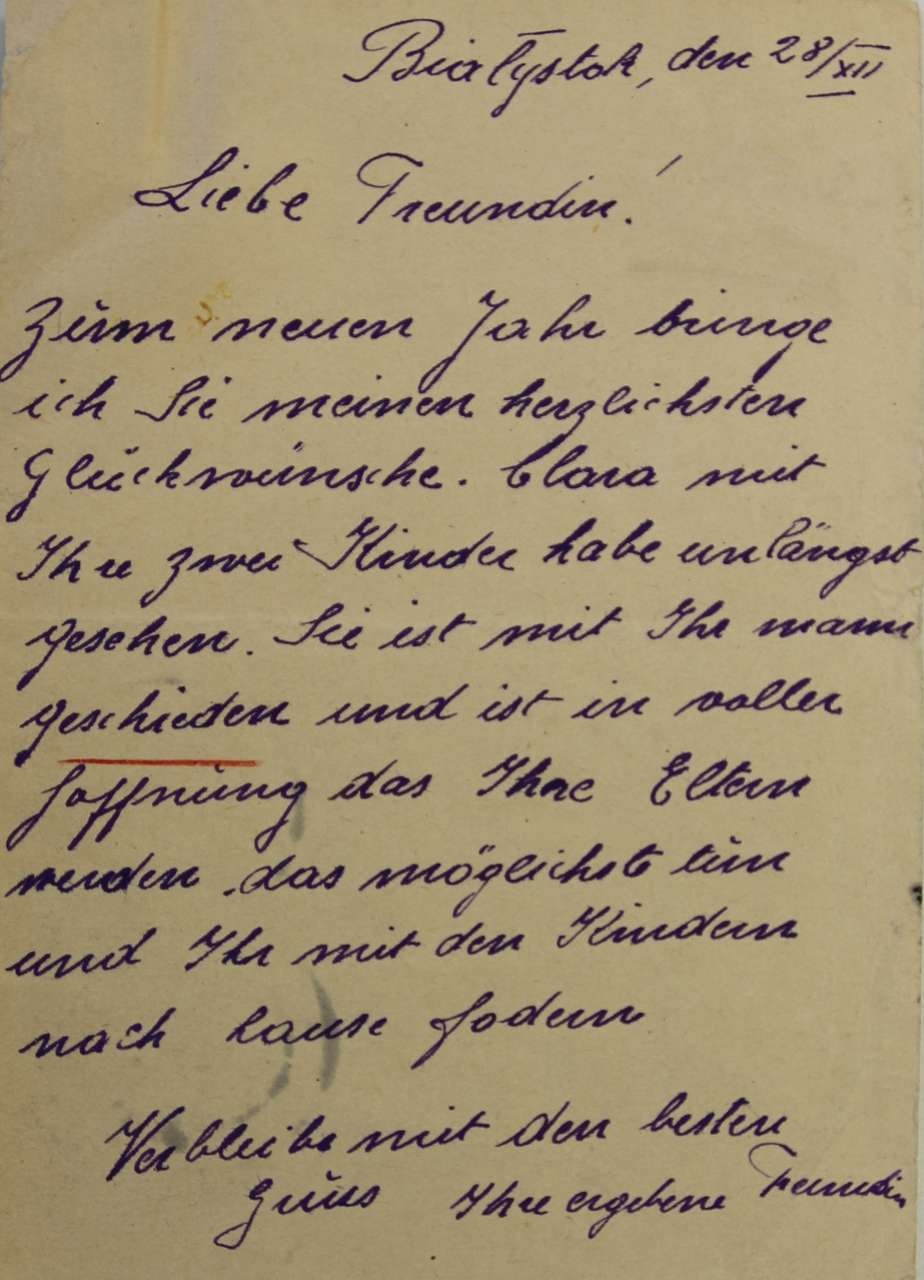 Białystok, den 28/XII
Liebe Freundin!
Zum neuen Jahr bringe
ich Sie meinen herzlichsten
Glückwünsche. Clara mit
Ihre zwei Kinder habe unlängst
gesehen. Sie ist mit Ihr mann
geschieden und ist in voller
hoffnung das Ihre Eltern
werden das möglichste tun
und Ihr mit den Kindern
nach hause fodern
Verbleibe mit den besten
Gruss Ihre ergebene Freundin